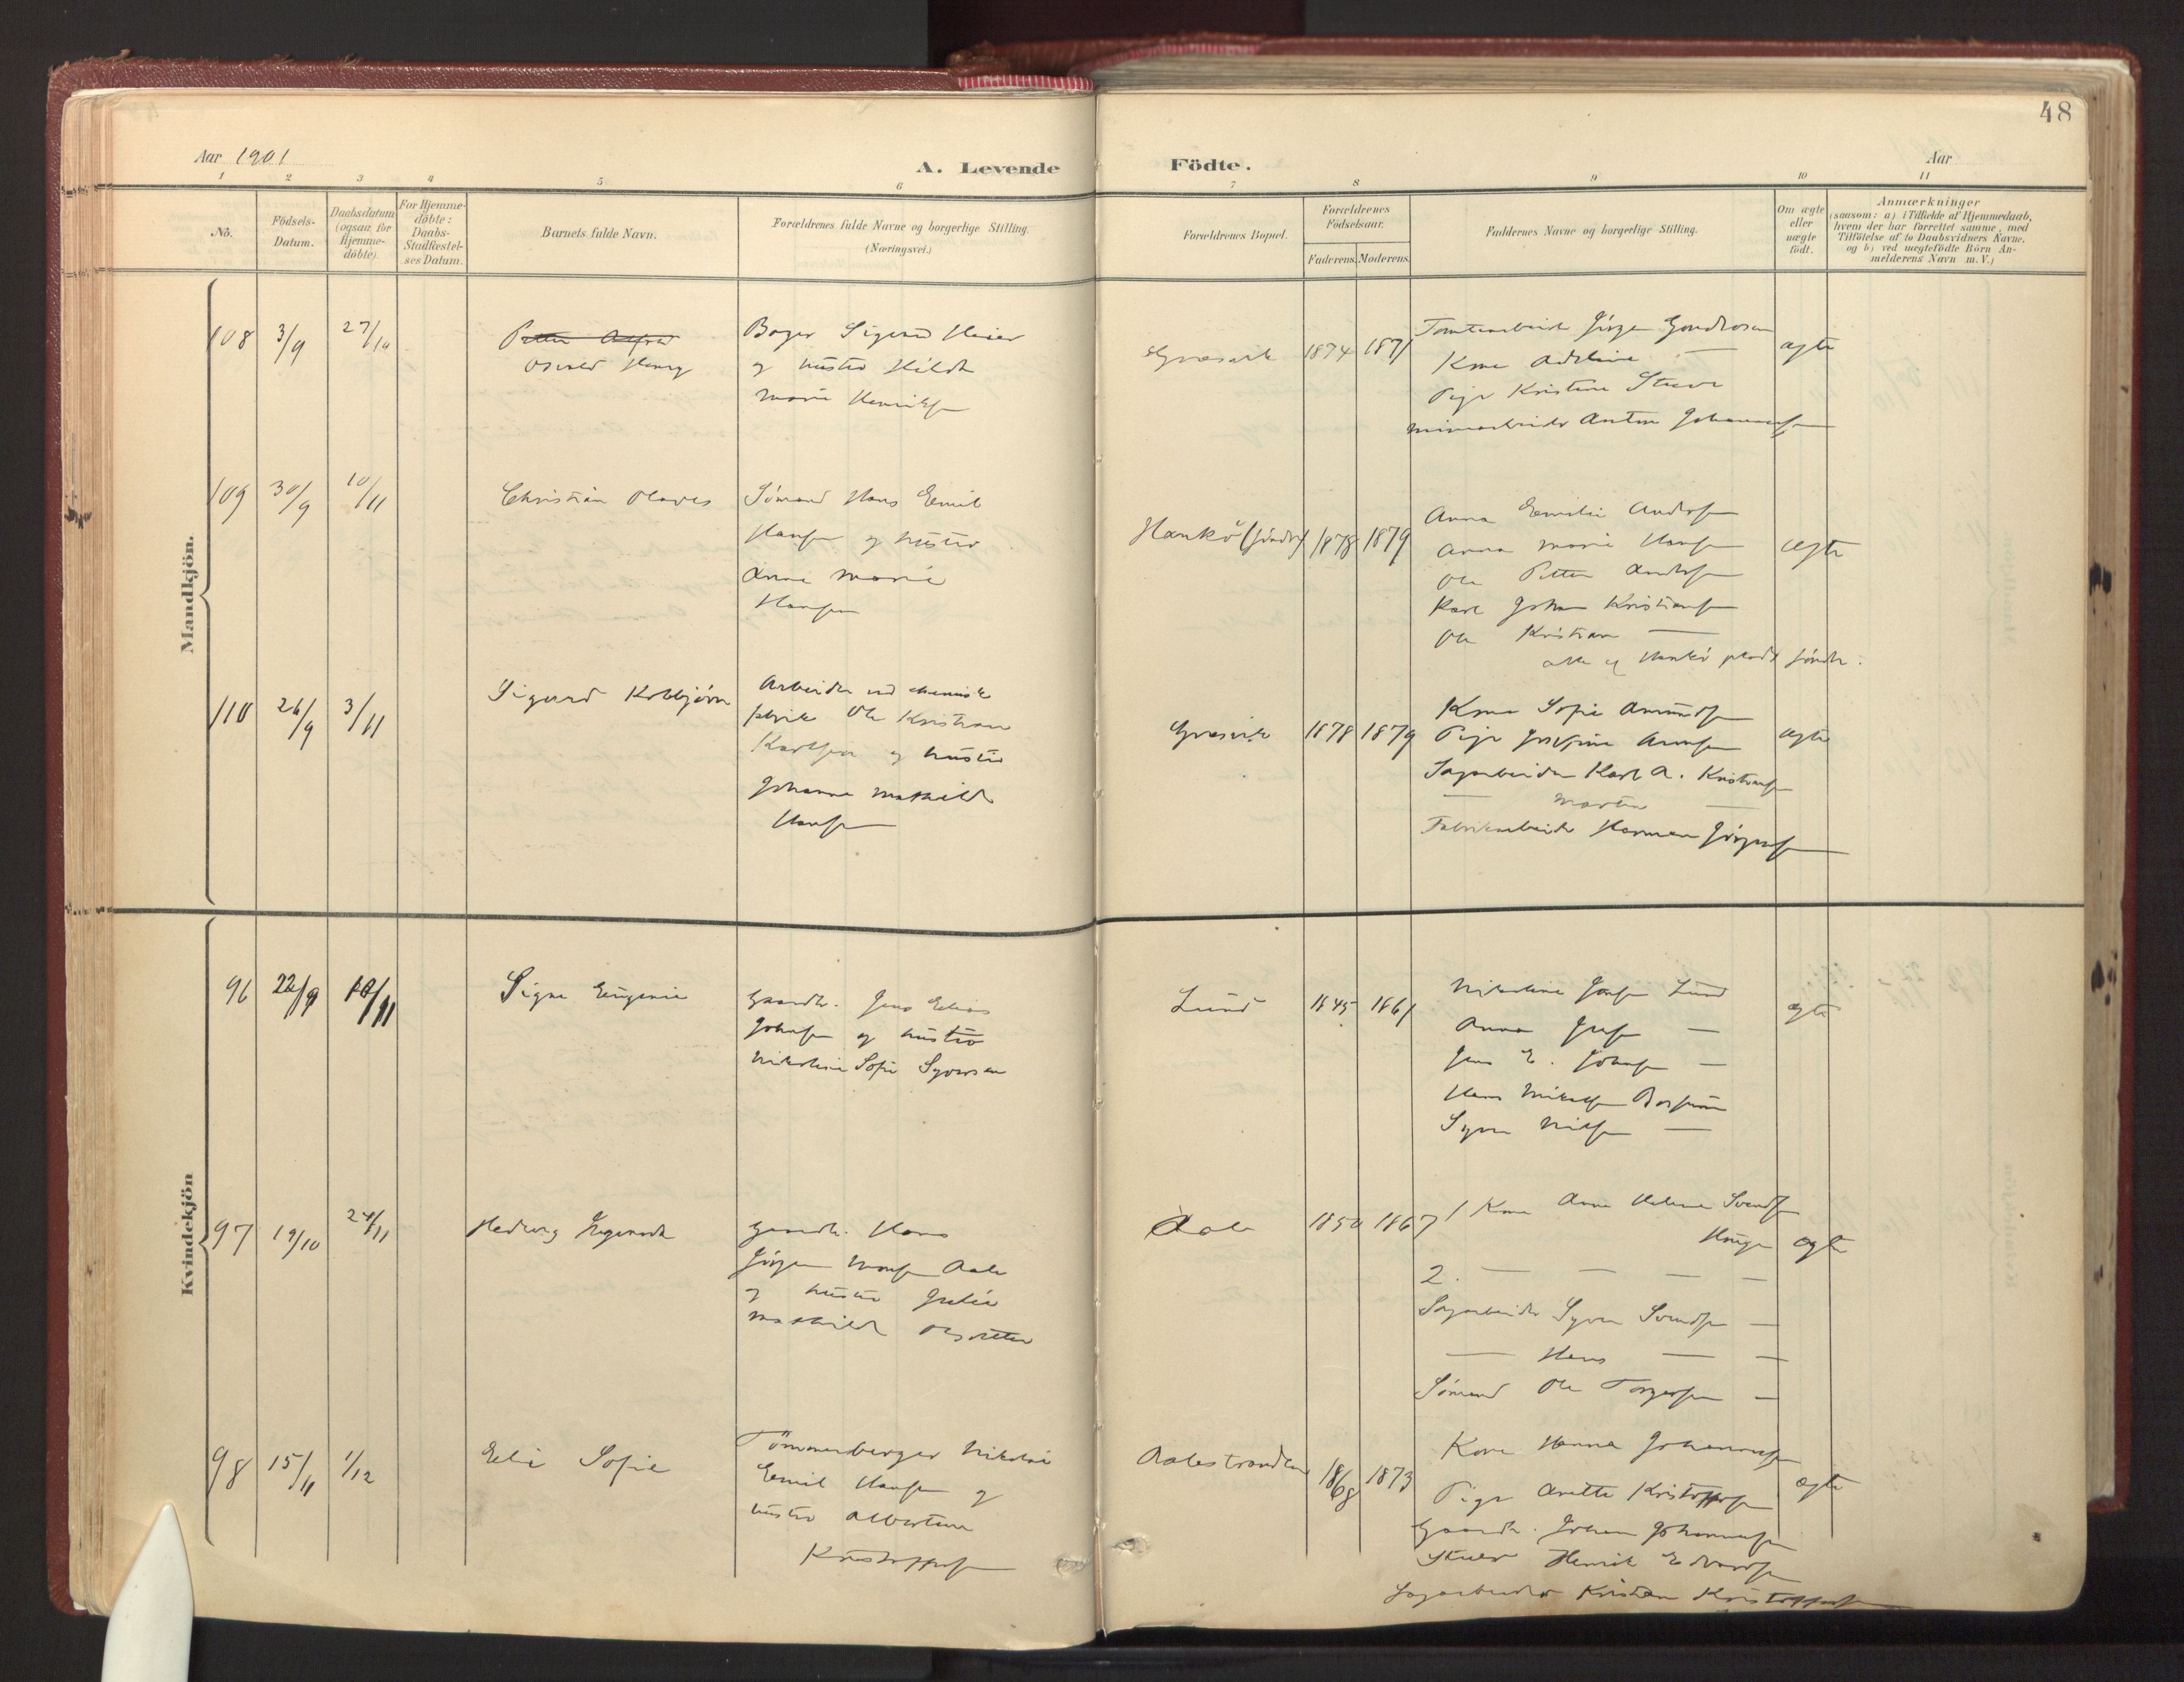 48
Aar 1901
A. Levende Födte.
Aar
1 2 3 4 5 6 7 8 9 10 11
No.
Födsels-
Datum.
Daabsdatum
(ogsaa for
Hjemme-
döbte).
For Hjemme-
döbte:
Daabs-
Stadfæstel-
ses Datum.
Barnets fulde Navn.
Forældrenes fulde Navne og borgerlige Stilling.
(Næringsvei.)
Forældrenes Bopæl.
Forældrenes
Födselsaar.
Faderens. Moderens.
Faddernes Navne og borgerlige Stilling.
Om ægte
eller
uægte
födt.
Anmærkninger
(saasom: a) i Tilfælde af Hjemmedaab,
hvem der har forrettet samme, med
Tilföielse af to Daabsvidners Navne,
og b) ved uegtefödte Börn An-
melderens Navn m. V.)
Mandkjön.
108 3/9 27/10
Petter Alfred
Osvald Henry
Bager Sigurd Meier
og hustru Hilda
Marie Henriksen
Græsvik 1874 1871
Tomtearbeider Jörgen
Kone Adeline —
Pige Kristine
Minearbeider Anton Johannessen
ægte
109 30/9 10/11
Christian Olaves
Sömand Hans Emil
Hansen og hustru
Anna Marie
Hansen
Hankö (söndre) 1878 1879
Anna Emilie Andersen
Anna Marie Hansen
Ole Petter Andersen
Karl Johan Kristiansen
Ole Kristian —
alle af Hankö söndre.
ægte
110 26/9 3/11
Sigurd Kolbjörn
Arbeider ved chemisk
fabrik Ole Kristian
Karlsen og hustru
Johanne Mathilde
Hansen
Græsvik 1878 1879
Kone Sofie Amundsen
Pige Josefine
Sagarbeider Karl A. Kristiansen
— Martin —
Fabrikarbeider Herman Jörgensen
ægte
Kvindekjön
96 22/9 10/11
Signe Eugenie
Gaardbr. Jens Elias
Johnsen og hustru
Nikoline Sofie Syversen
Lund 1845 1861
Nikoline Lund
Anna —
Jens E. Johnsen —
Hans
Syver Nilsen —
ægte
97 19/10 24/11
Hedvig
Gaardbr. Hans
Jörgen Aale
og hustru Julie
Mathilde Olsdatter
Aale 1850 1867
1 Kone Anna Helene Svendsen
Hauge
2. — — — —
Sagarbeider Syver Svendsen —
— Hans — —
Sömand Ole Torgersen —
ægte
98 15/11 1/12
Elie Sofie
Tömmerberger Nikolai
Emil Hansen og
hustru Albertine
Kristoffersen
Aalestranden 1868 1873
Kone Hanna Johannessen
Pige Anette Kristoffersen
Gaardbr. Johan Johannessen
Henrik Edvardsen
Sagarbeider Kristian Kristoffersen
ægte